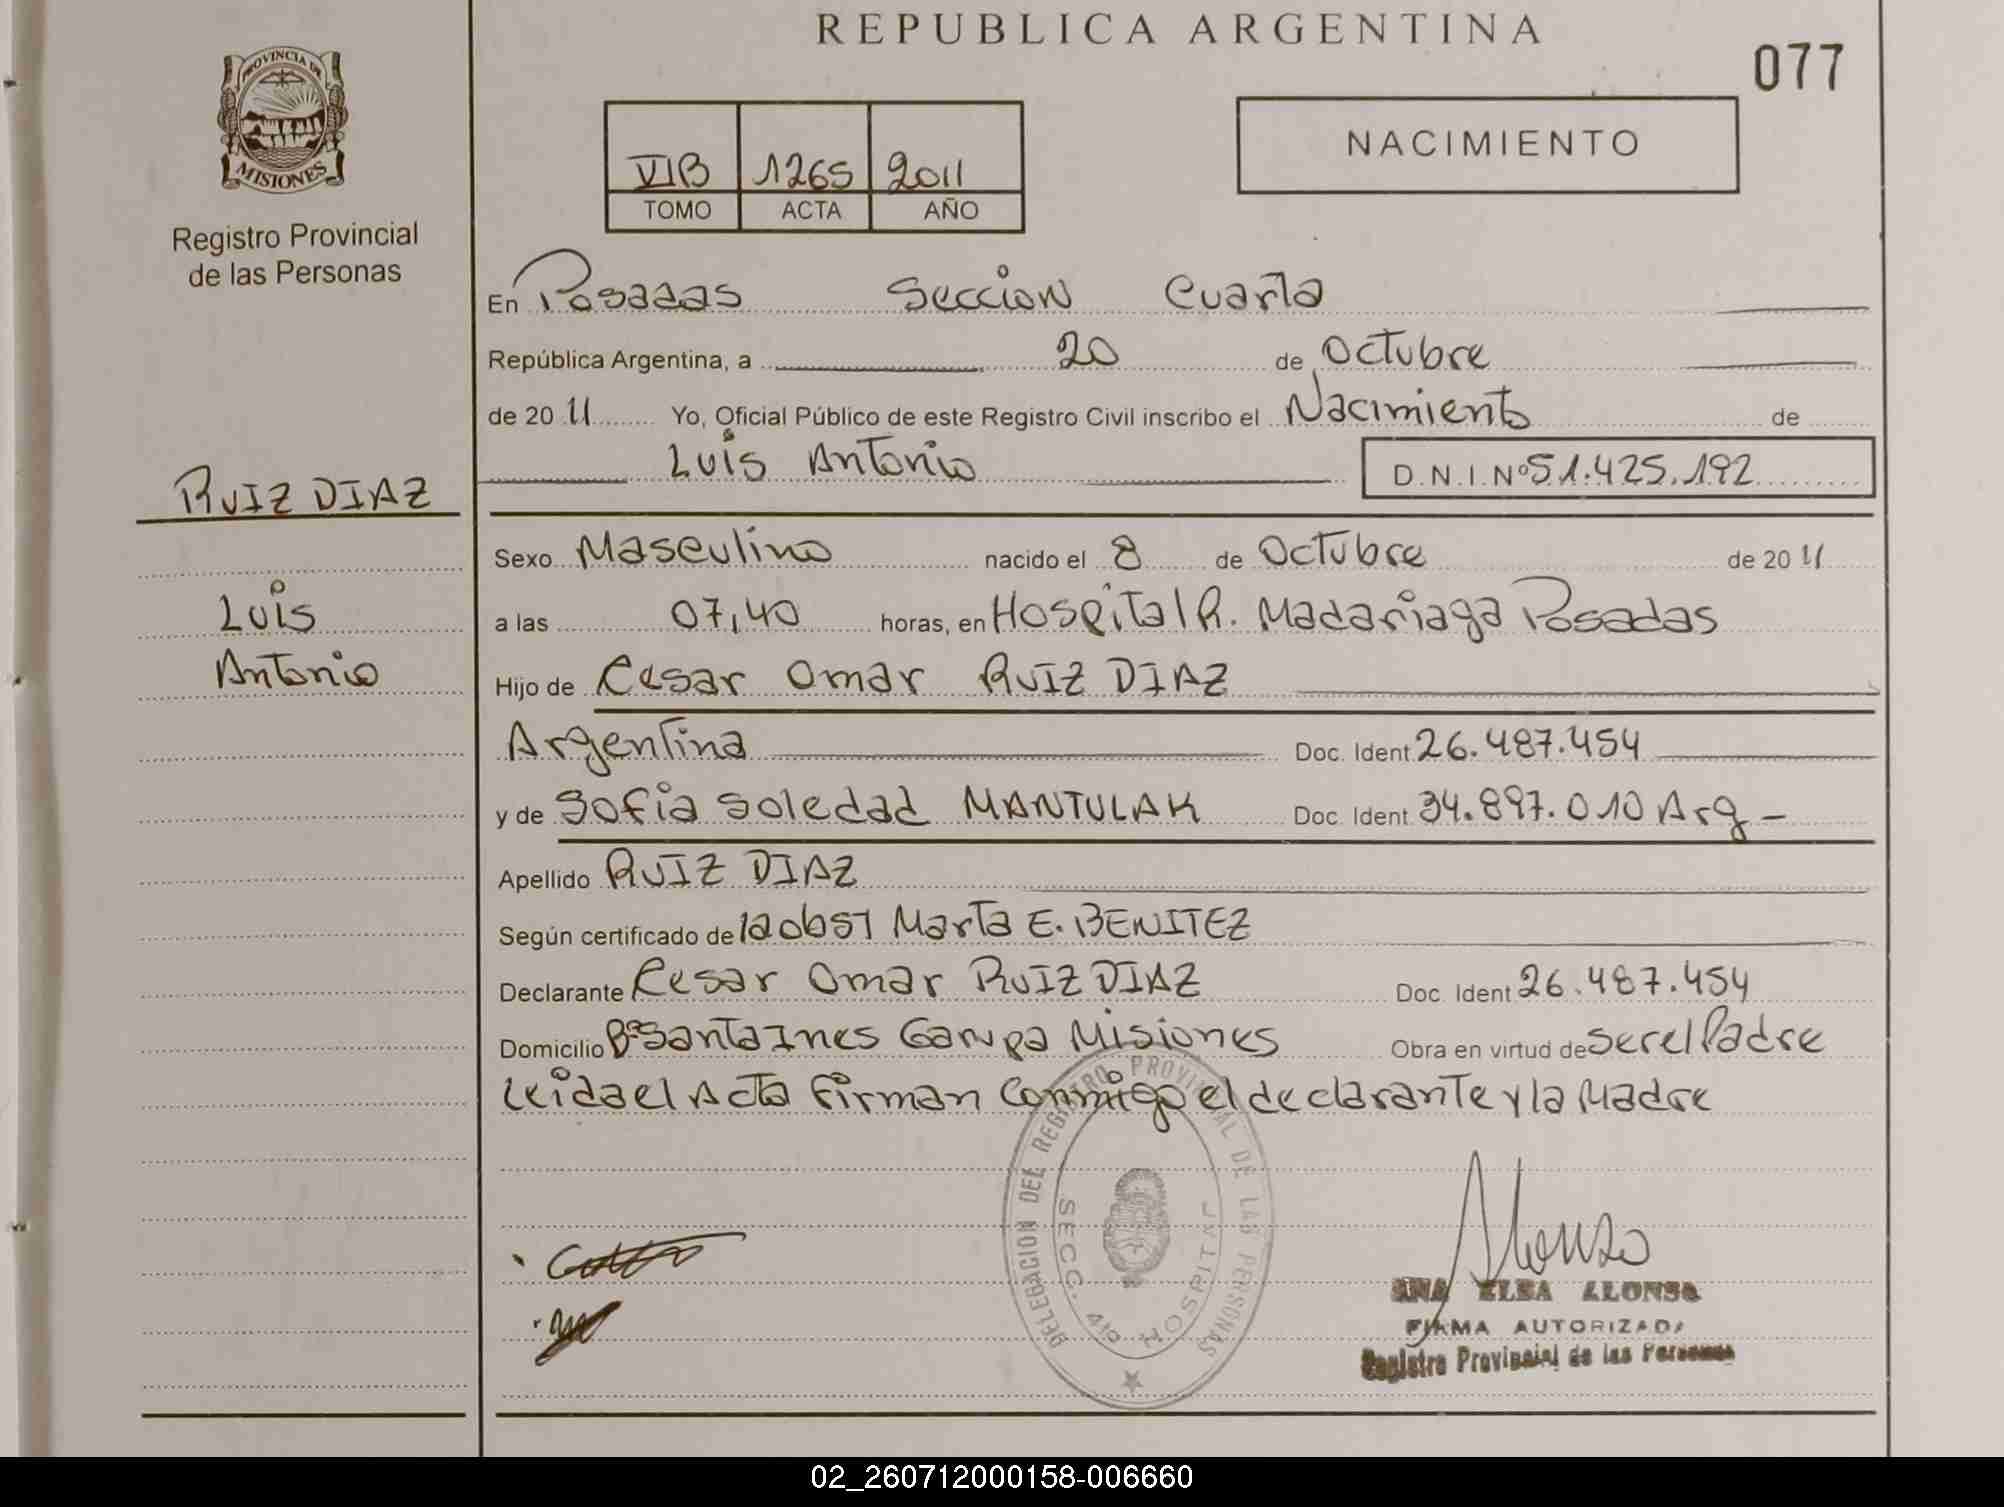 REPUBLICA ARGENTINA
077
PROVINCIA DE
MISIONES
Registro Provincial
de las Personas
VIB 1265 2011
TOMO ACTA AÑO
NACIMIENTO
En Posadas Sección Cuarta
República Argentina, a 20 de Octubre
de 20 11 Yo, Oficial Público de este Registro Civil inscribo el Nacimiento de
Luis Antonio D.N.I.Nº 51.425.192
RUIZ DIAZ
Luis
Antonio
Sexo Masculino nacido el 8 de Octubre de 20 11
a las 07,40 horas, en Hospital R. Madariaga Posadas
Hijo de Cesar Omar RUIZ DIAZ
Argentina Doc. Ident. 26.487.454
y de Sofia Soledad MANTULAK Doc. Ident. 34.897.010 Arg -
Apellido RUIZ DIAZ
Según certificado de la obst Marta E. BENITEZ
Declarante Cesar Omar RUIZ DIAZ Doc. Ident. 26.487.454
Domicilio Bº Santa Ines Garupa Misiones Obra en virtud de ser el Padre
Leida el Acta Firman Conmigo el declarante y la Madre
DELEGACION DEL REGISTRO PROVINCIAL DE LAS PERSONAS
SECC. 4ta HOSPITAL
Alonso
ANA ELBA ALONSO
FIRMA AUTORIZADA
Registro Provincial de las Personas
02_260712000158-006660